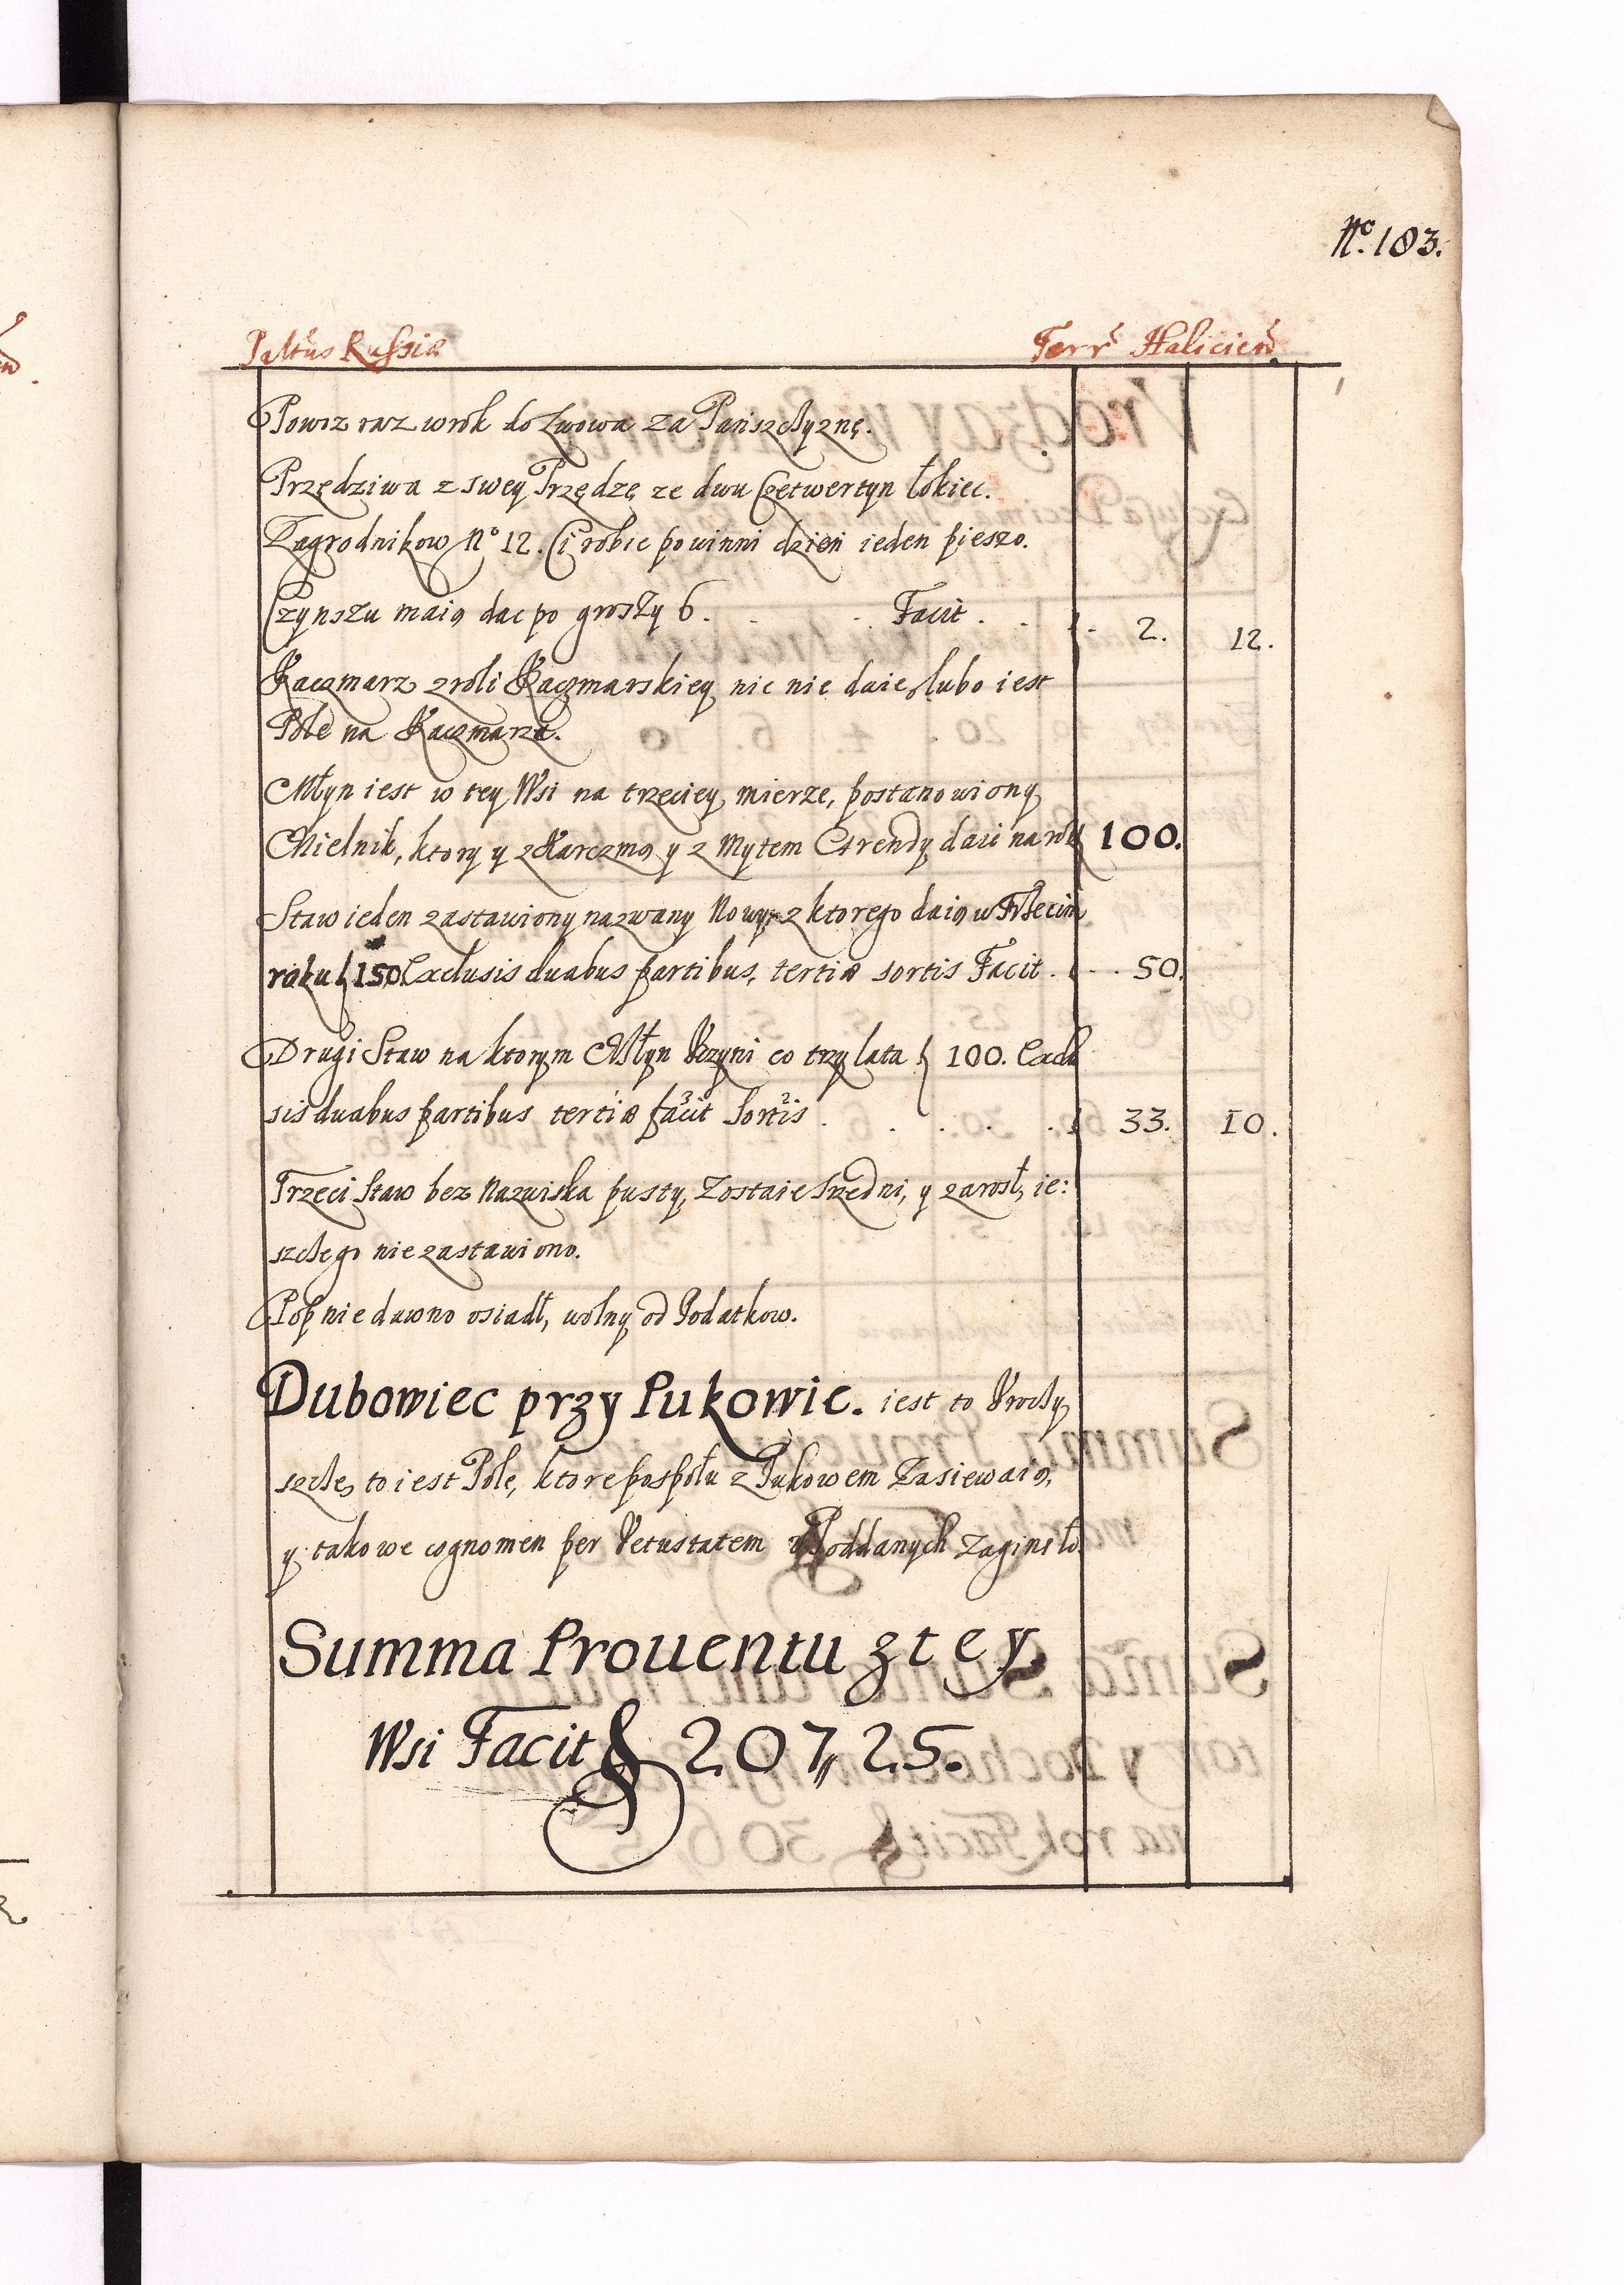 Nº. 183.
Pltűs Russiæ Terrʳ Halicień.
Powoz raz w rok do Lwowa za Panszczyznę.
Przędziwa z swey Przędzę ze dwu Czetwertyn łokiec.
Zagrodnikow Nº 12. Ci robic powinni dzień ieden pieszo.
Czynszu maią dac po groszy 6. . . Facit . . . 2. 12.
Kaczmarz z roli Kaczmarskiey nic nie daie, lubo iest
Pole na Kaczmarza.
Młyn iest w tey Wsi na trzeciey mierze, postanowiony
Mielnik, ktory y z Karczmą y z Mytem Arendy daie na rok 100.
Staw ieden zastawiony nazwany Nowy, z ktorego daią w Trzecim
roku 150. Exclusis duabus partibus, tertiæ sortis Facit . . . 50.
Drugi Staw na ktorym Młyn Rzyni co trzy lata 100. Exclu
sis duabus partibus tertiæ facit sortis . . . . . 33. 10.
Trzeci Staw bez Nazwiska pusty, Zostaie Sredni, y zarosł, ie:
szcze go nie zastawiono.
Pop nie dawno osiadł, wolny od Podatkow.
Dubowiec przy Pukowie. iest to Vroczy
szcze, to iest Pole, ktore pospołu z Pukowem Zasiewaią,
y takowe cognomen per Vetustatem u Poddanych zagineło.
Summa Prouentu z tey
Wsi Facit 207,, 25.